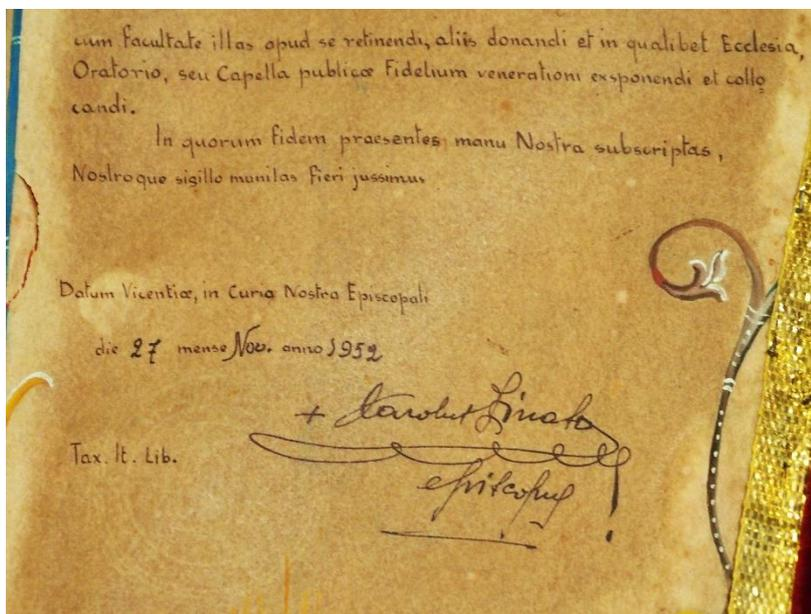 cum facultate illas apud se retinendi, aliis donandi et in qualibet Ecclesia,
Oratorio, seu Capella publicæ Fidelium venerationi exsponendi et collo
candi.
In quorum fidem praesentes, manu Nostra subscriptas,
Nostroque sigillo munitas fieri jussimus
Datum Vicentiæ, in Curia Nostra Episcopali
die 27 mense Nov. anno 1952
+ Carolus Zinato
Tax. It. Lib.
episcopus